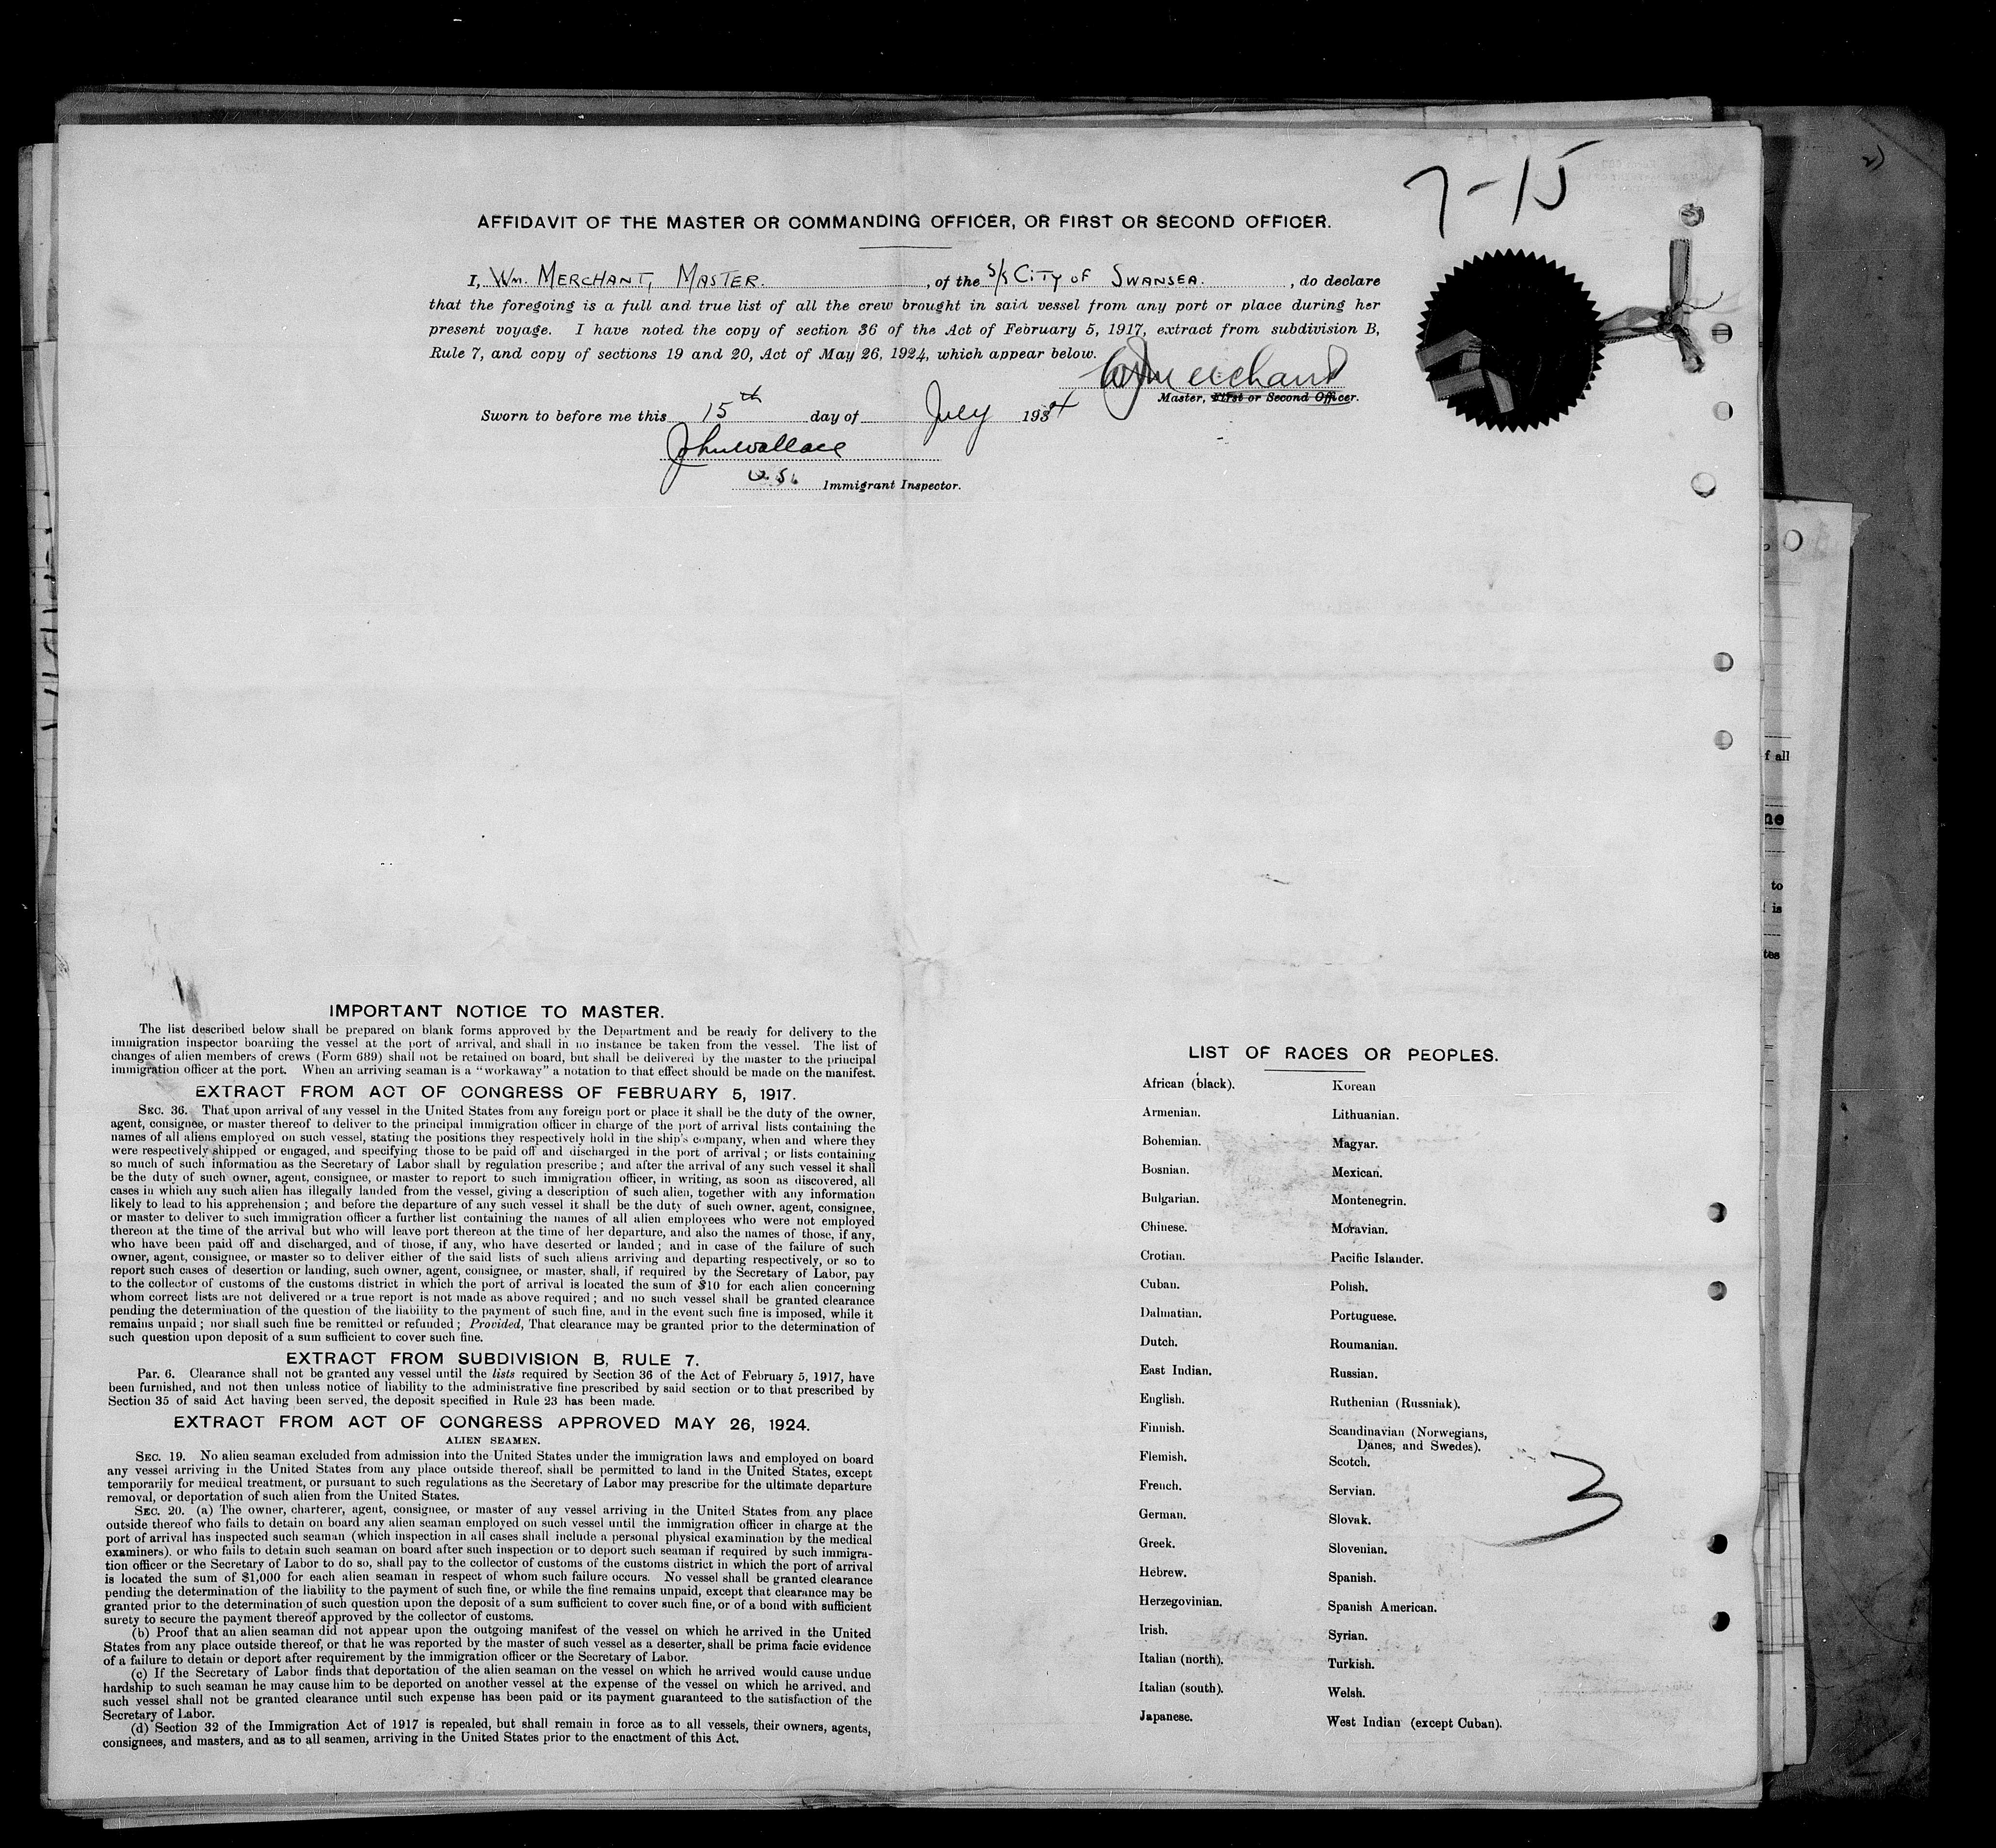 7-15
AFFIDAVIT OF THE MASTER OR COMMANDING OFFICER, OR FIRST OR SECOND OFFICER.
I, Wm. MERCHANT, MASTER. , of the S/S CITY OF SWANSEA. , do declare
that the foregoing is a full and true list of all the crew brought in said vessel from any port or place during her
present voyage. I have noted the copy of section 36 of the Act of February 5, 1917, extract from subdivision B,
Rule 7, and copy of sections 19 and 20, Act of May 26, 1924, which appear below.
Wm Merchant
Master, First or Second Officer.
Sworn to before me this 15th day of July 1934
John Wallace
U.S. Immigrant Inspector.
f all
ne
to
is
tes
IMPORTANT NOTICE TO MASTER.
The list described below shall be prepared on blank forms approved by the Department and be ready for delivery to the
immigration inspector boarding the vessel at the port of arrival, and shall in no instance be taken from the vessel. The list of
changes of alien members of crews (Form 689) shall not be retained on board, but shall be delivered by the master to the principal
immigration officer at the port. When an arriving seaman is a "workaway" a notation to that effect should be made on the manifest.
EXTRACT FROM ACT OF CONGRESS OF FEBRUARY 5, 1917.
SEC. 36. That upon arrival of any vessel in the United States from any foreign port or place it shall be the duty of the owner,
agent, consignee, or master thereof to deliver to the principal immigration officer in charge of the port of arrival lists containing the
names of all aliens employed on such vessel, stating the positions they respectively hold in the ship's company, when and where they
were respectively shipped or engaged, and specifying those to be paid off and discharged in the port of arrival; or lists containing
so much of such information as the Secretary of Labor shall by regulation prescribe; and after the arrival of any such vessel it shall
be the duty of such owner, agent, consignee, or master to report to such immigration officer, in writing, as soon as discovered, all
cases in which any such alien has illegally landed from the vessel, giving a description of such alien, together with any information
likely to lead to his apprehension; and before the departure of any such vessel it shall be the duty of such owner, agent, consignee,
or master to deliver to such immigration officer a further list containing the names of all alien employees who were not employed
thereon at the time of the arrival but who will leave port thereon at the time of her departure, and also the names of those, if any,
who have been paid off and discharged, and of those, if any, who have deserted or landed; and in case of the failure of such
owner, agent, consignee, or master so to deliver either of the said lists of such aliens arriving and departing respectively, or so to
report such cases of desertion or landing, such owner, agent, consignee, or master, shall, if required by the Secretary of Labor, pay
to the collector of customs of the customs district in which the port of arrival is located the sum of $10 for each alien concerning
whom correct lists are not delivered or a true report is not made as above required; and no such vessel shall be granted clearance
pending the determination of the question of the liability to the payment of such fine, and in the event such fine is imposed, while it
remains unpaid; nor shall such fine be remitted or refunded; Provided, That clearance may be granted prior to the determination of
such question upon deposit of a sum sufficient to cover such fine.
EXTRACT FROM SUBDIVISION B, RULE 7.
Par. 6. Clearance shall not be granted any vessel until the lists required by Section 36 of the Act of February 5, 1917, have
been furnished, and not then unless notice of liability to the administrative fine prescribed by said section or to that prescribed by
Section 35 of said Act having been served, the deposit specified in Rule 23 has been made.
EXTRACT FROM ACT OF CONGRESS APPROVED MAY 26, 1924.
ALIEN SEAMEN.
SEC. 19. No alien seaman excluded from admission into the United States under the immigration laws and employed on board
any vessel arriving in the United States from any place outside thereof, shall be permitted to land in the United States, except
temporarily for medical treatment, or pursuant to such regulations as the Secretary of Labor may prescribe for the ultimate departure
removal, or deportation of such alien from the United States.
SEC. 20. (a) The owner, charterer, agent, consignee, or master of any vessel arriving in the United States from any place
outside thereof who fails to detain on board any alien seaman employed on such vessel until the immigration officer in charge at the
port of arrival has inspected such seaman (which inspection in all cases shall include a personal physical examination by the medical
examiners), or who fails to detain such seaman on board after such inspection or to deport such seaman if required by such immigra-
tion officer or the Secretary of Labor to do so, shall pay to the collector of customs of the customs district in which the port of arrival
is located the sum of $1,000 for each alien seaman in respect of whom such failure occurs. No vessel shall be granted clearance
pending the determination of the liability to the payment of such fine, or while the fine remains unpaid, except that clearance may be
granted prior to the determination of such question upon the deposit of a sum sufficient to cover such fine, or of a bond with sufficient
surety to secure the payment thereof approved by the collector of customs.
(b) Proof that an alien seaman did not appear upon the outgoing manifest of the vessel on which he arrived in the United
States from any place outside thereof, or that he was reported by the master of such vessel as a deserter, shall be prima facie evidence
of a failure to detain or deport after requirement by the immigration officer or the Secretary of Labor.
(c) If the Secretary of Labor finds that deportation of the alien seaman on the vessel on which he arrived would cause undue
hardship to such seaman he may cause him to be deported on another vessel at the expense of the vessel on which he arrived, and
such vessel shall not be granted clearance until such expense has been paid or its payment guaranteed to the satisfaction of the
Secretary of Labor.
(d) Section 32 of the Immigration Act of 1917 is repealed, but shall remain in force as to all vessels, their owners, agents,
consignees, and masters, and as to all seamen, arriving in the United States prior to the enactment of this Act.
LIST OF RACES OR PEOPLES.
African (black). Korean
Armenian. Lithuanian.
Bohemian. Magyar.
Bosnian. Mexican.
Bulgarian. Montenegrin.
Chinese. Moravian.
Crotian. Pacific Islander.
Cuban. Polish.
Dalmatian. Portuguese.
Dutch. Roumanian.
East Indian. Russian.
English. Ruthenian (Russniak).
Finnish. Scandinavian (Norwegians,
Danes, and Swedes).
Flemish. Scotch.
French. Servian.
German. Slovak.
Greek. Slovenian.
Hebrew. Spanish.
Herzegovinian. Spanish American.
Irish. Syrian.
Italian (north). Turkish.
Italian (south). Welsh.
Japanese. West Indian (except Cuban).
3